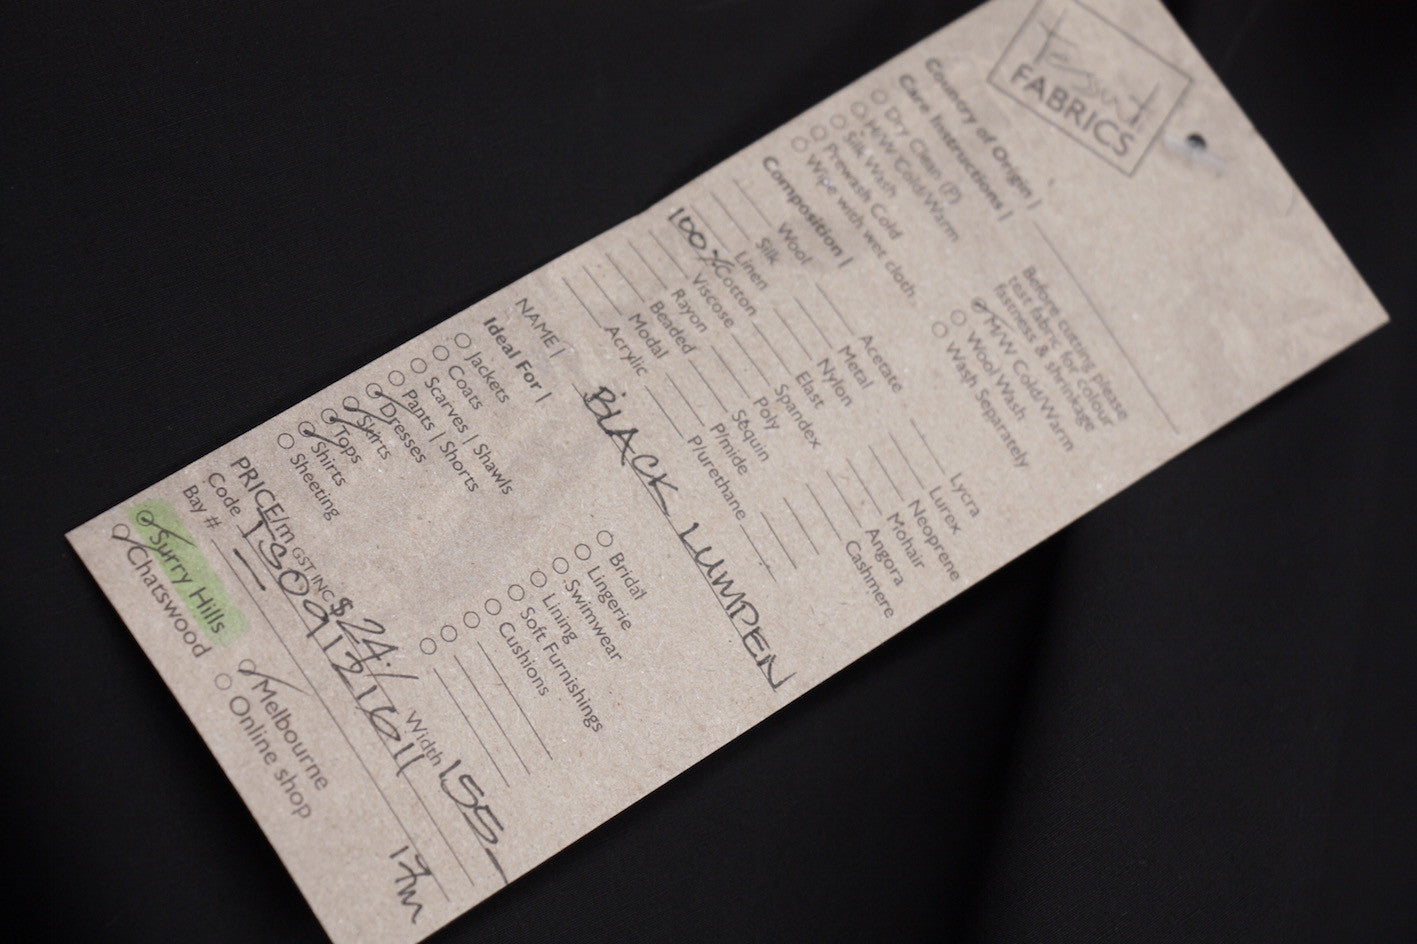 Tessuti
FABRICS
Country of Origin |
Care Instructions |
Dry Clean (P)
H/W Cold/Warm
Silk Wash
Prewash Cold
Wipe with wet cloth
Before cutting please
test fabric for colour
fastness & shrinkage
M/W Cold/Warm
Wool Wash
Wash Separately
Composition |
Wool
Silk
Linen
100% Cotton
Viscose
Rayon
Beaded
Modal
Acrylic
Acetate
Metal
Nylon
Elast
Spandex
Poly
Sequin
P/mide
P/urethane
Lycra
Lurex
Neoprene
Mohair
Angora
Cashmere
NAME | BLACK LUMPEN
Ideal For |
Jackets
Coats
Scarves | Shawls
Pants | Shorts
Dresses
Skirts
Tops
Shirts
Sheeting
Bridal
Lingerie
Swimwear
Lining
Soft Furnishings
Cushions
PRICE/m GST INC $24./ Width 155
Code TS09121611
Bay # 17m
Surry Hills
Chatswood
Melbourne
Online shop